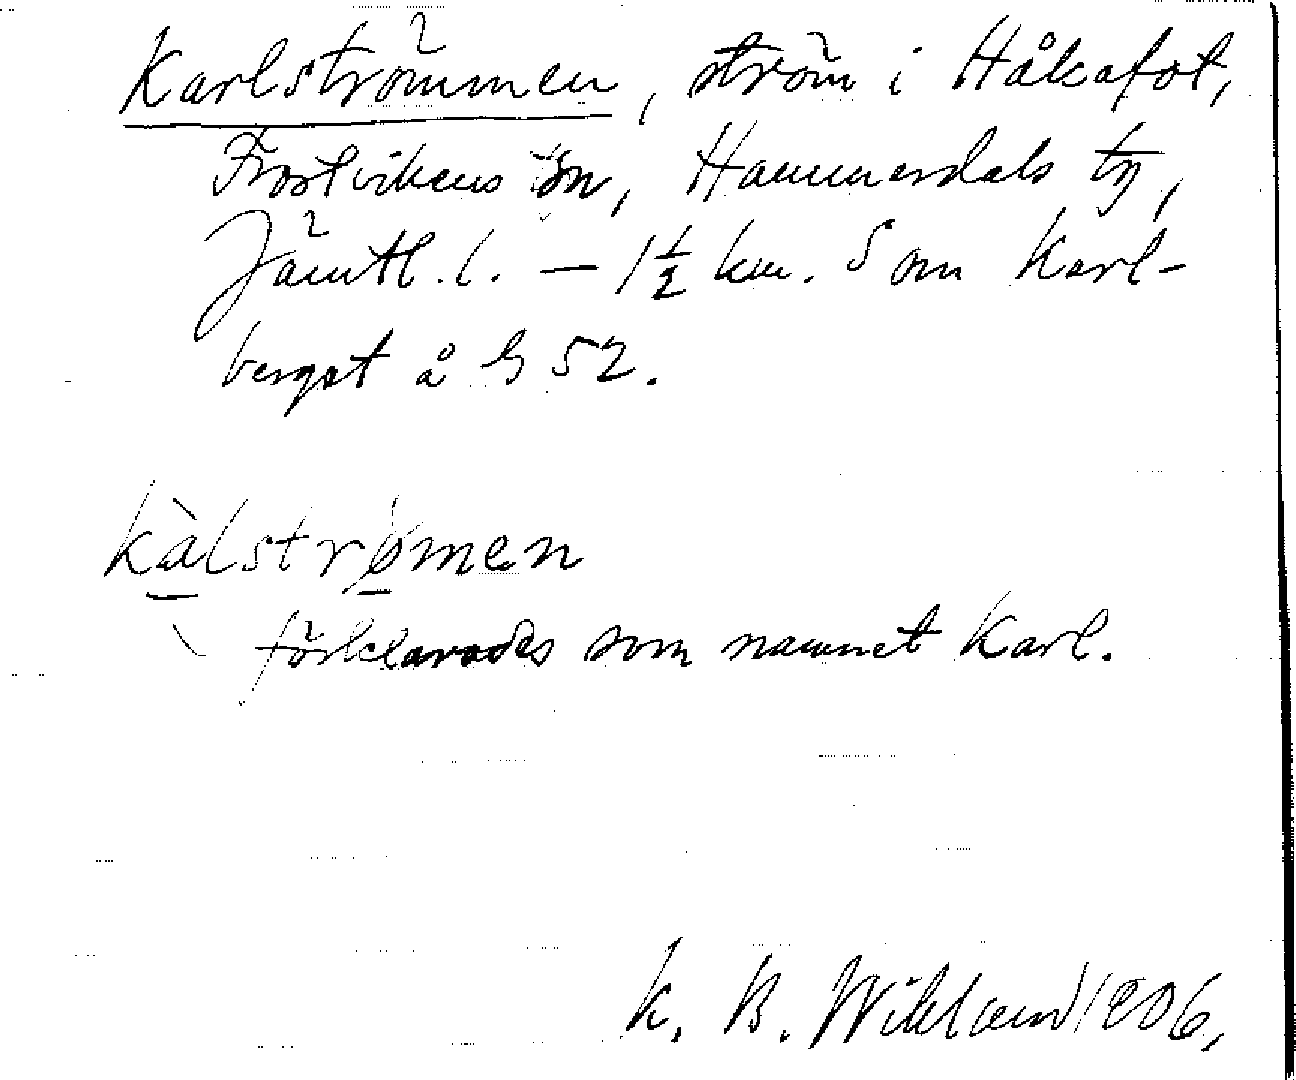 Karlströmmen, ström i Håkafot,
Frostvikens sn, Hammerdals tg,
Jämtl. l. — 1½ km. Som Karl-
berget å § 52.
kàlstrømen
förklarades som namnet Karl.
K. B. Wiklund 1906.